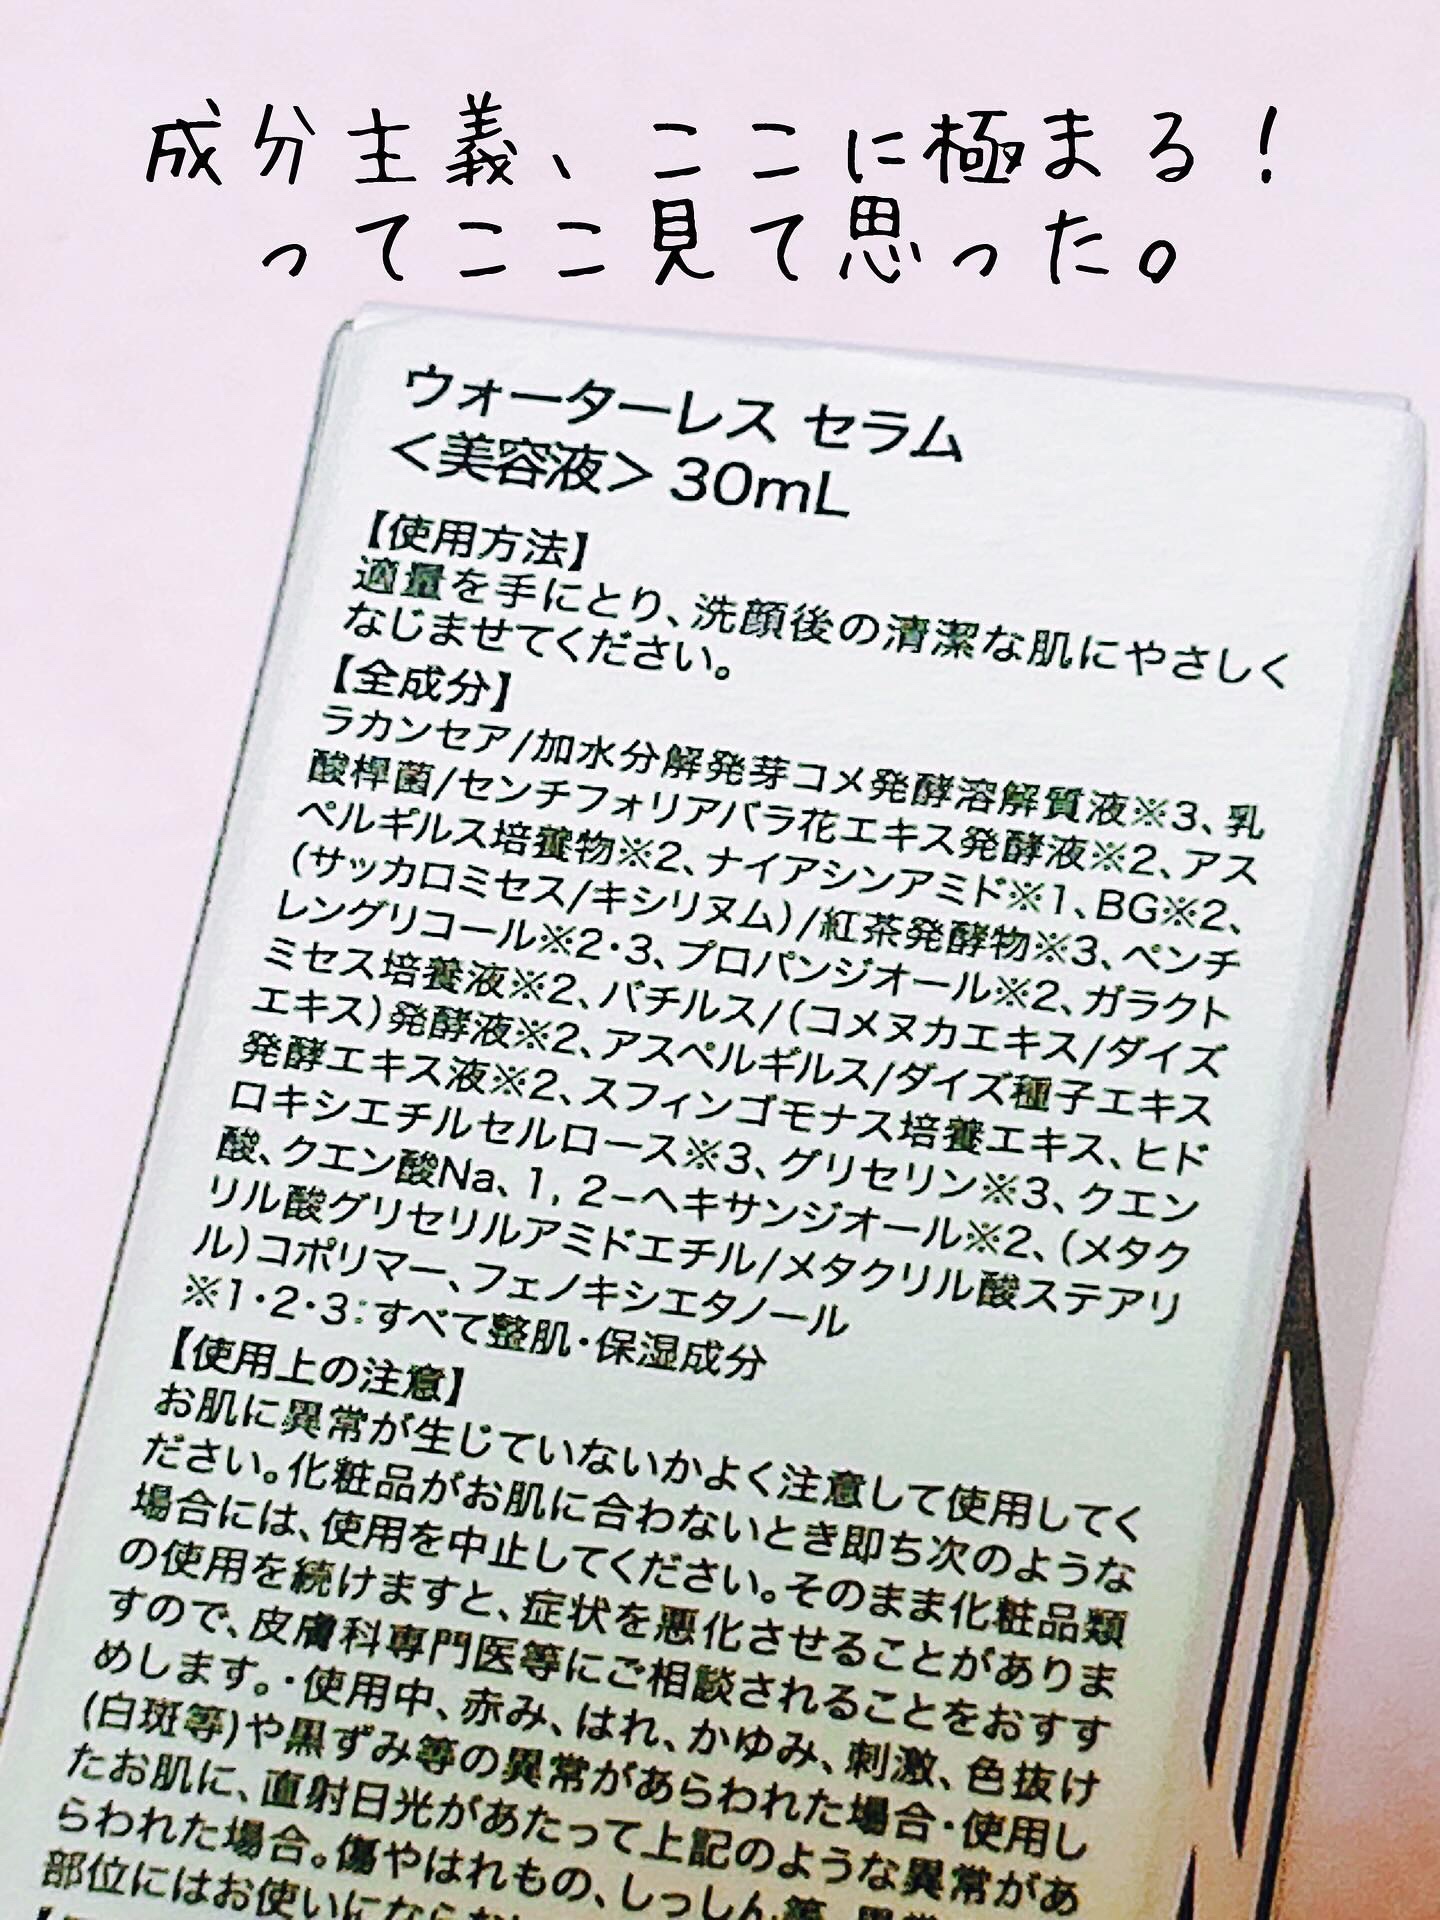 成分主義、ここに極まる！
ってここ見て思った。
ウォーターレス セラム
＜美容液＞30mL
【使用方法】
適量を手にとり、洗顔後の清潔な肌にやさしく
なじませてください。
【全成分】
ラカンセア/加水分解発芽コメ発酵溶解質液※3、乳
酸桿菌/センチフォリアバラ花エキス発酵液※2、アス
ペルギルス培養物※2、ナイアシンアミド※1、BG※2、
(サッカロミセス/キシリヌム)/紅茶発酵物※3、ペンチ
レングリコール※2・3、プロパンジオール※2、ガラクト
ミセス培養液※2、バチルス/(コメヌカエキス/ダイズ
エキス)発酵液※2、アスペルギルス/ダイズ種子エキス
発酵エキス液※2、スフィンゴモナス培養エキス、ヒド
ロキシエチルセルロース※3、グリセリン※3、クエン
酸、クエン酸Na、1, 2−ヘキサンジオール※2、(メタク
リル酸グリセリルアミドエチル/メタクリル酸ステアリ
ル)コポリマー、フェノキシエタノール
※1・2・3：すべて整肌・保湿成分
【使用上の注意】
お肌に異常が生じていないかよく注意して使用してく
ださい。化粧品がお肌に合わないとき即ち次のような
場合には、使用を中止してください。そのまま化粧品類
の使用を続けますと、症状を悪化させることがありま
すので、皮膚科専門医等にご相談されることをおすす
めします。・使用中、赤み、はれ、かゆみ、刺激、色抜け
(白斑等)や黒ずみ等の異常があらわれた場合・使用し
たお肌に、直射日光があたって上記のような異常があ
らわれた場合。傷やはれもの、しっしん等、異常
部位にはお使いにならな